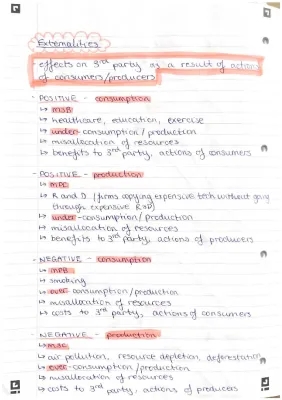 Externalities
effects on 3rd party as a result of actions
of consumers/producers
- POSITIVE - consumption
↳ MSB
↳ healthcare, education, exercise
↳ under-consumption / production
↳ misallocation of resources
↳ benefits to 3rd party, actions of consumers
- POSITIVE - production
↳ MPC
↳ R and D (firms copying expensive tech without going
through expensive R&D)
↳ under-consumption/production
↳ misallocation of resources
↳ benefits to 3rd party, actions of producers
- NEGATIVE - consumption
↳ MPB
↳ smoking
↳ over consumption/production
↳ misallocation of resources
↳ costs to 3rd party, actions of consumers
- NEGATIVE - production
↳ MSC
↳ air pollution, resource depletion, deforestation
↳ over-consumption/production
↳ misallocation of resources
↳ costs to 3rd party, actions of producers